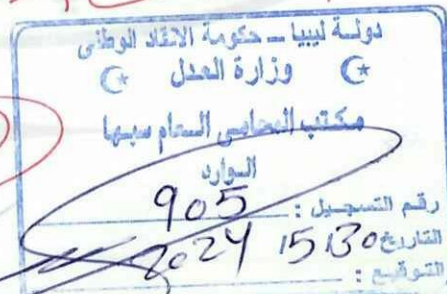 دولة ليبيا – حكومة الانقاذ الوطنى
وزارة العدل
مكتب المحامى العام سبها
الوارد
رقم التسجيل : 905
التاريخ 30 5 2024
التوقيع :